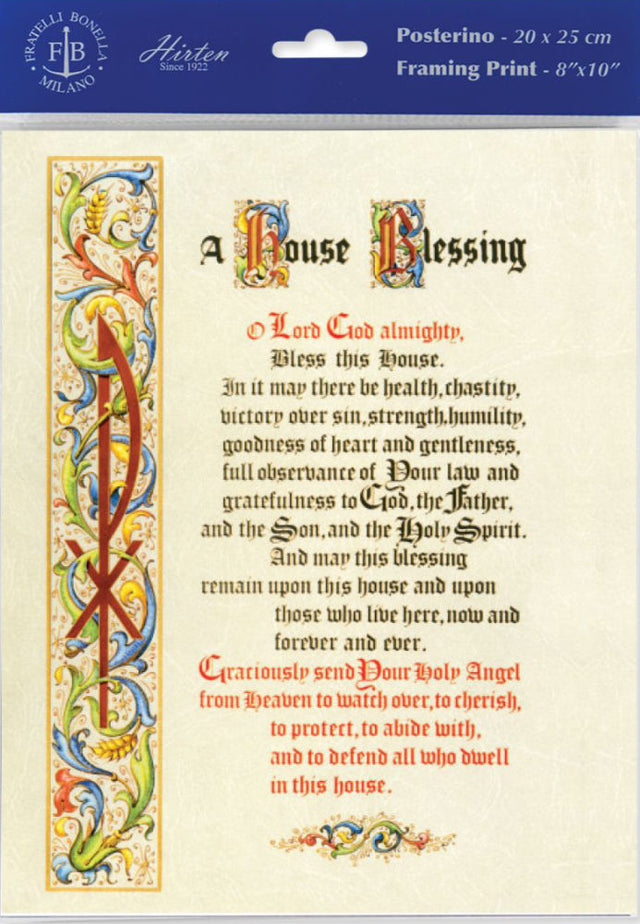 FRATELLI BONELLA
FB
MILANO
Hirten
Since 1922
Posterino - 20 x 25 cm
Framing Print - 8”x10”
A House Blessing
O Lord God almighty,
Bless this House.
In it may there be health,chastity,
victory over sin,strength,humility,
goodness of heart and gentleness,
full observance of Your law and
gratefulness to God,the Father,
and the Son,and the Holy Spirit.
And may this blessing
remain upon this house and upon
those who live here,now and
forever and ever.
Graciously send Your Holy Angel
from Heaven to watch over,to cherish,
to protect,to abide with,
and to defend all who dwell
in this house.